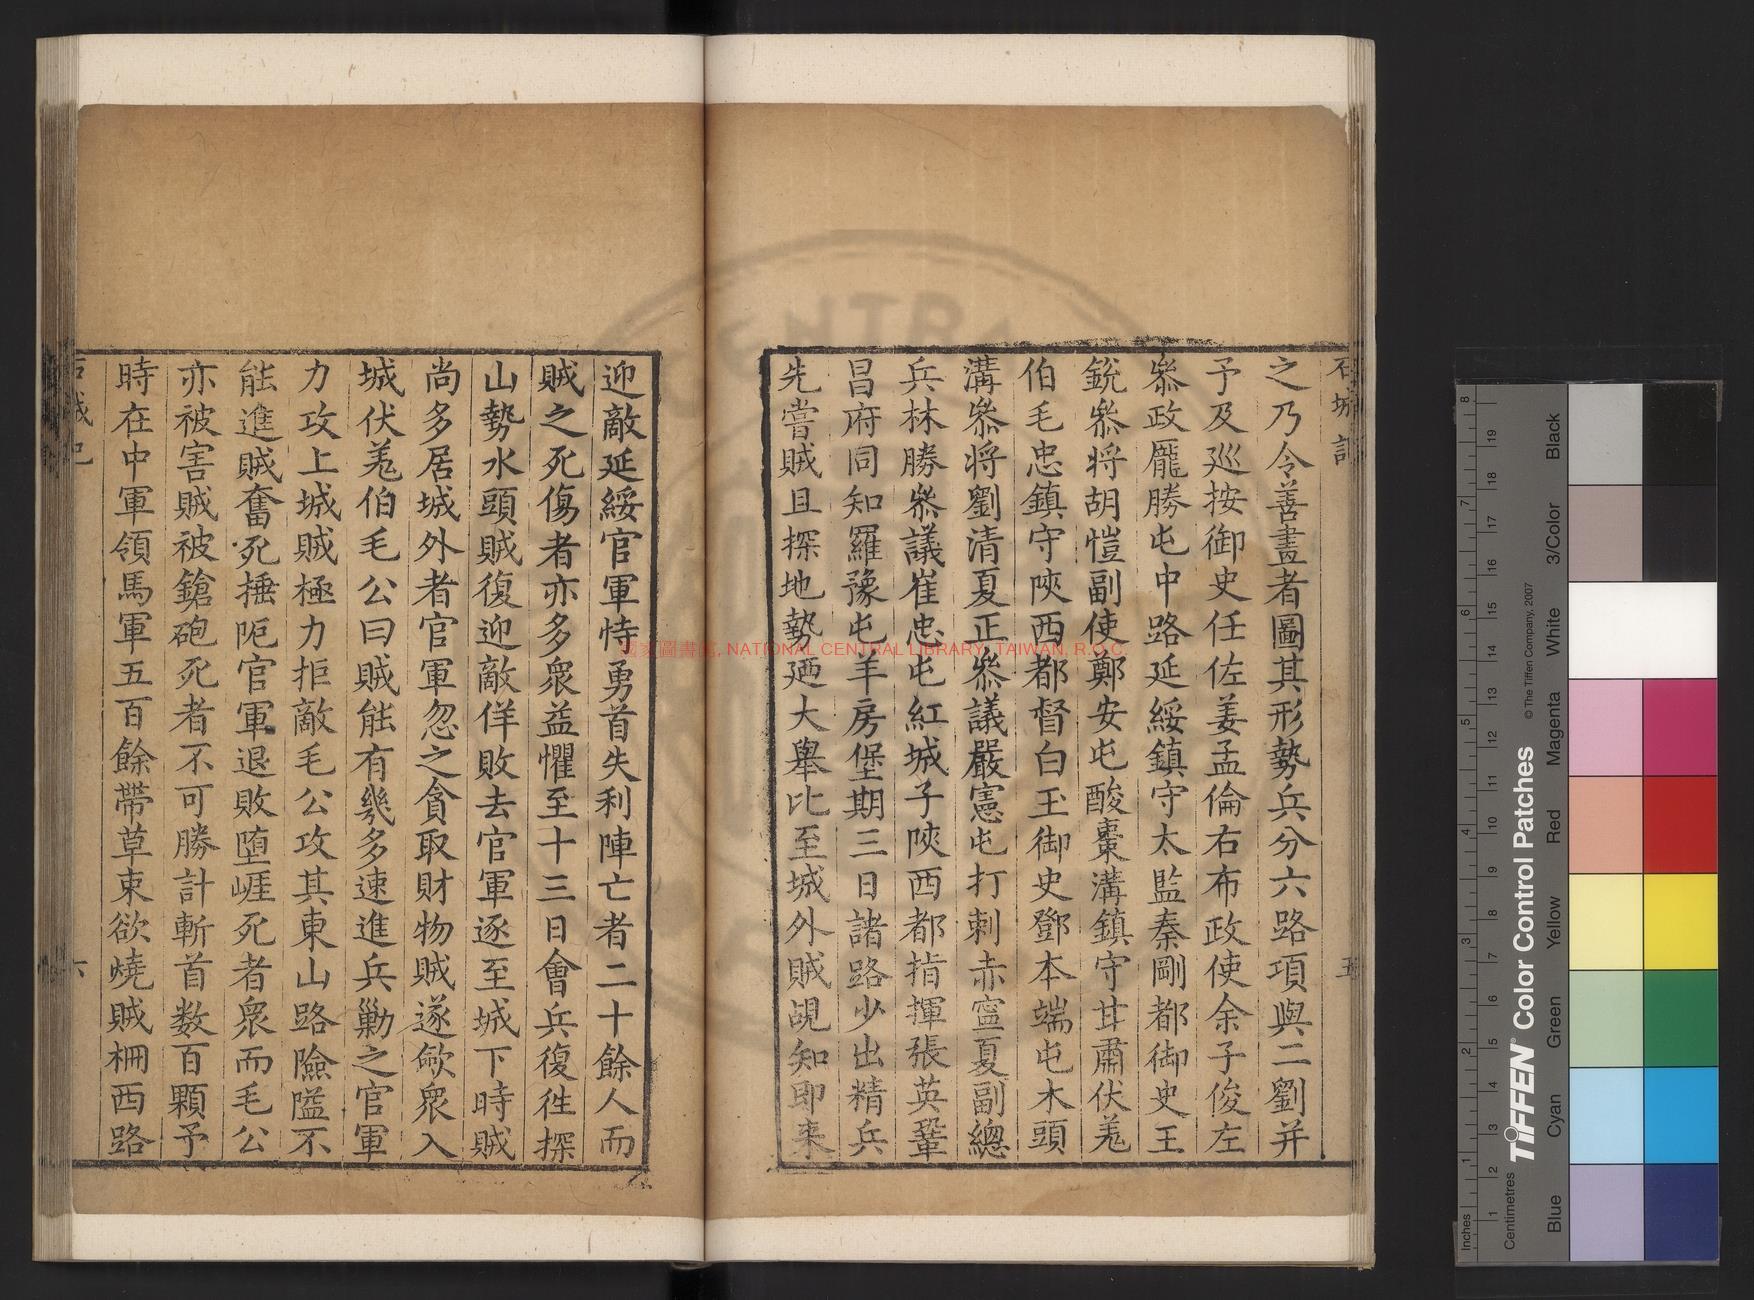 石城記
五
之乃令善畫者圖其形勢兵分六路項與二劉并
予及廵按御史任佐姜孟倫右布政使余子俊左
叅政龎勝屯中路延綏鎮守太監秦剛都御史王
銳叅將胡愷副使鄭安屯酸棗溝鎮守甘肅伏羌
伯毛忠鎮守陝西都督白玉御史鄧本端屯木頭
溝叅將劉清夏正叅議嚴憲屯打剌赤寧夏副總
兵林勝叅議崔忠屯紅城子陝西都指揮張英鞏
昌府同知羅豫屯羊房堡期三日諸路少出精兵
先嘗賊且探地勢廼大舉比至城外賊覘知即来
迎敵延綏官軍恃勇首失利陣亡者二十餘人而
賊之死傷者亦多衆益懼至十三日會兵復徃探
山勢水頭賊復迎敵佯敗去官軍逐至城下時賊
尚多居城外者官軍忽之貪取財物賊遂歛衆入
城伏羌伯毛公曰賊能有幾多速進兵勦之官軍
力攻上城賊極力拒敵毛公攻其東山路險隘不
能進賊奮死捶阨官軍退敗墮崕死者衆而毛公
亦被害賊被鎗砲死者不可勝計斬首数百顆予
時在中軍領馬軍五百餘帶草束欲燒賊柵西路
石城記
六
國家圖書館, NATIONAL CENTRAL LIBRARY, TAIWAN, R.O.C.
TIFFEN® Color Control Patches
© The Tiffen Company, 2007
Inches
Centimetres
Blue
Cyan
Green
Yellow
Red
Magenta
White
3/Color
Black